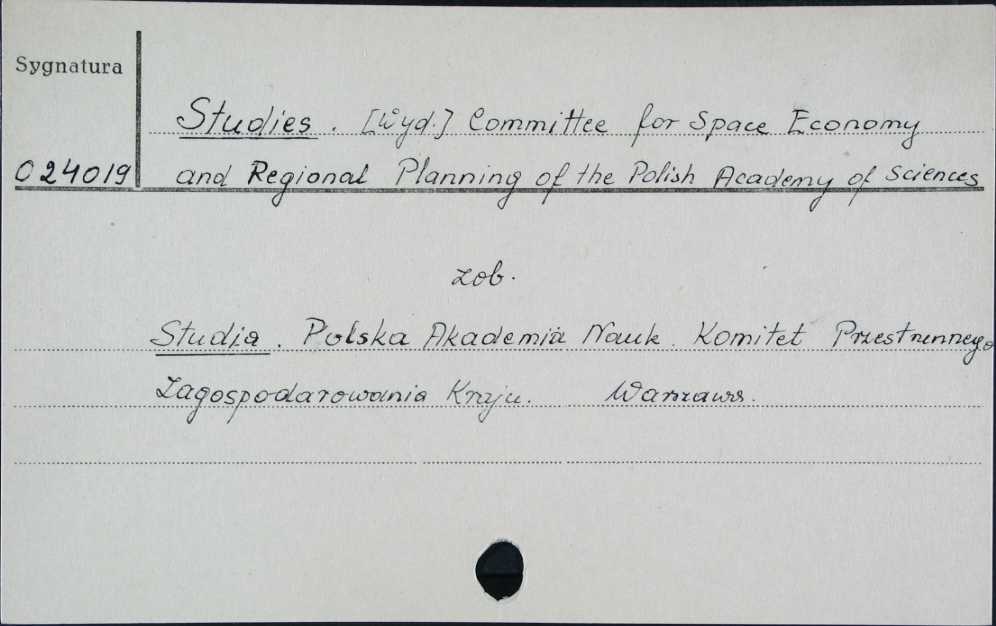 Sygnatura
Studies. [Wyd.] Committee for Space Economy
024019 and Regional Planning of the Polish Academy of Sciences
zob.
Studia. Polska Akademia Nauk. Komitet Przestrzennego
Zagospodarowania Kraju. Warszawa.